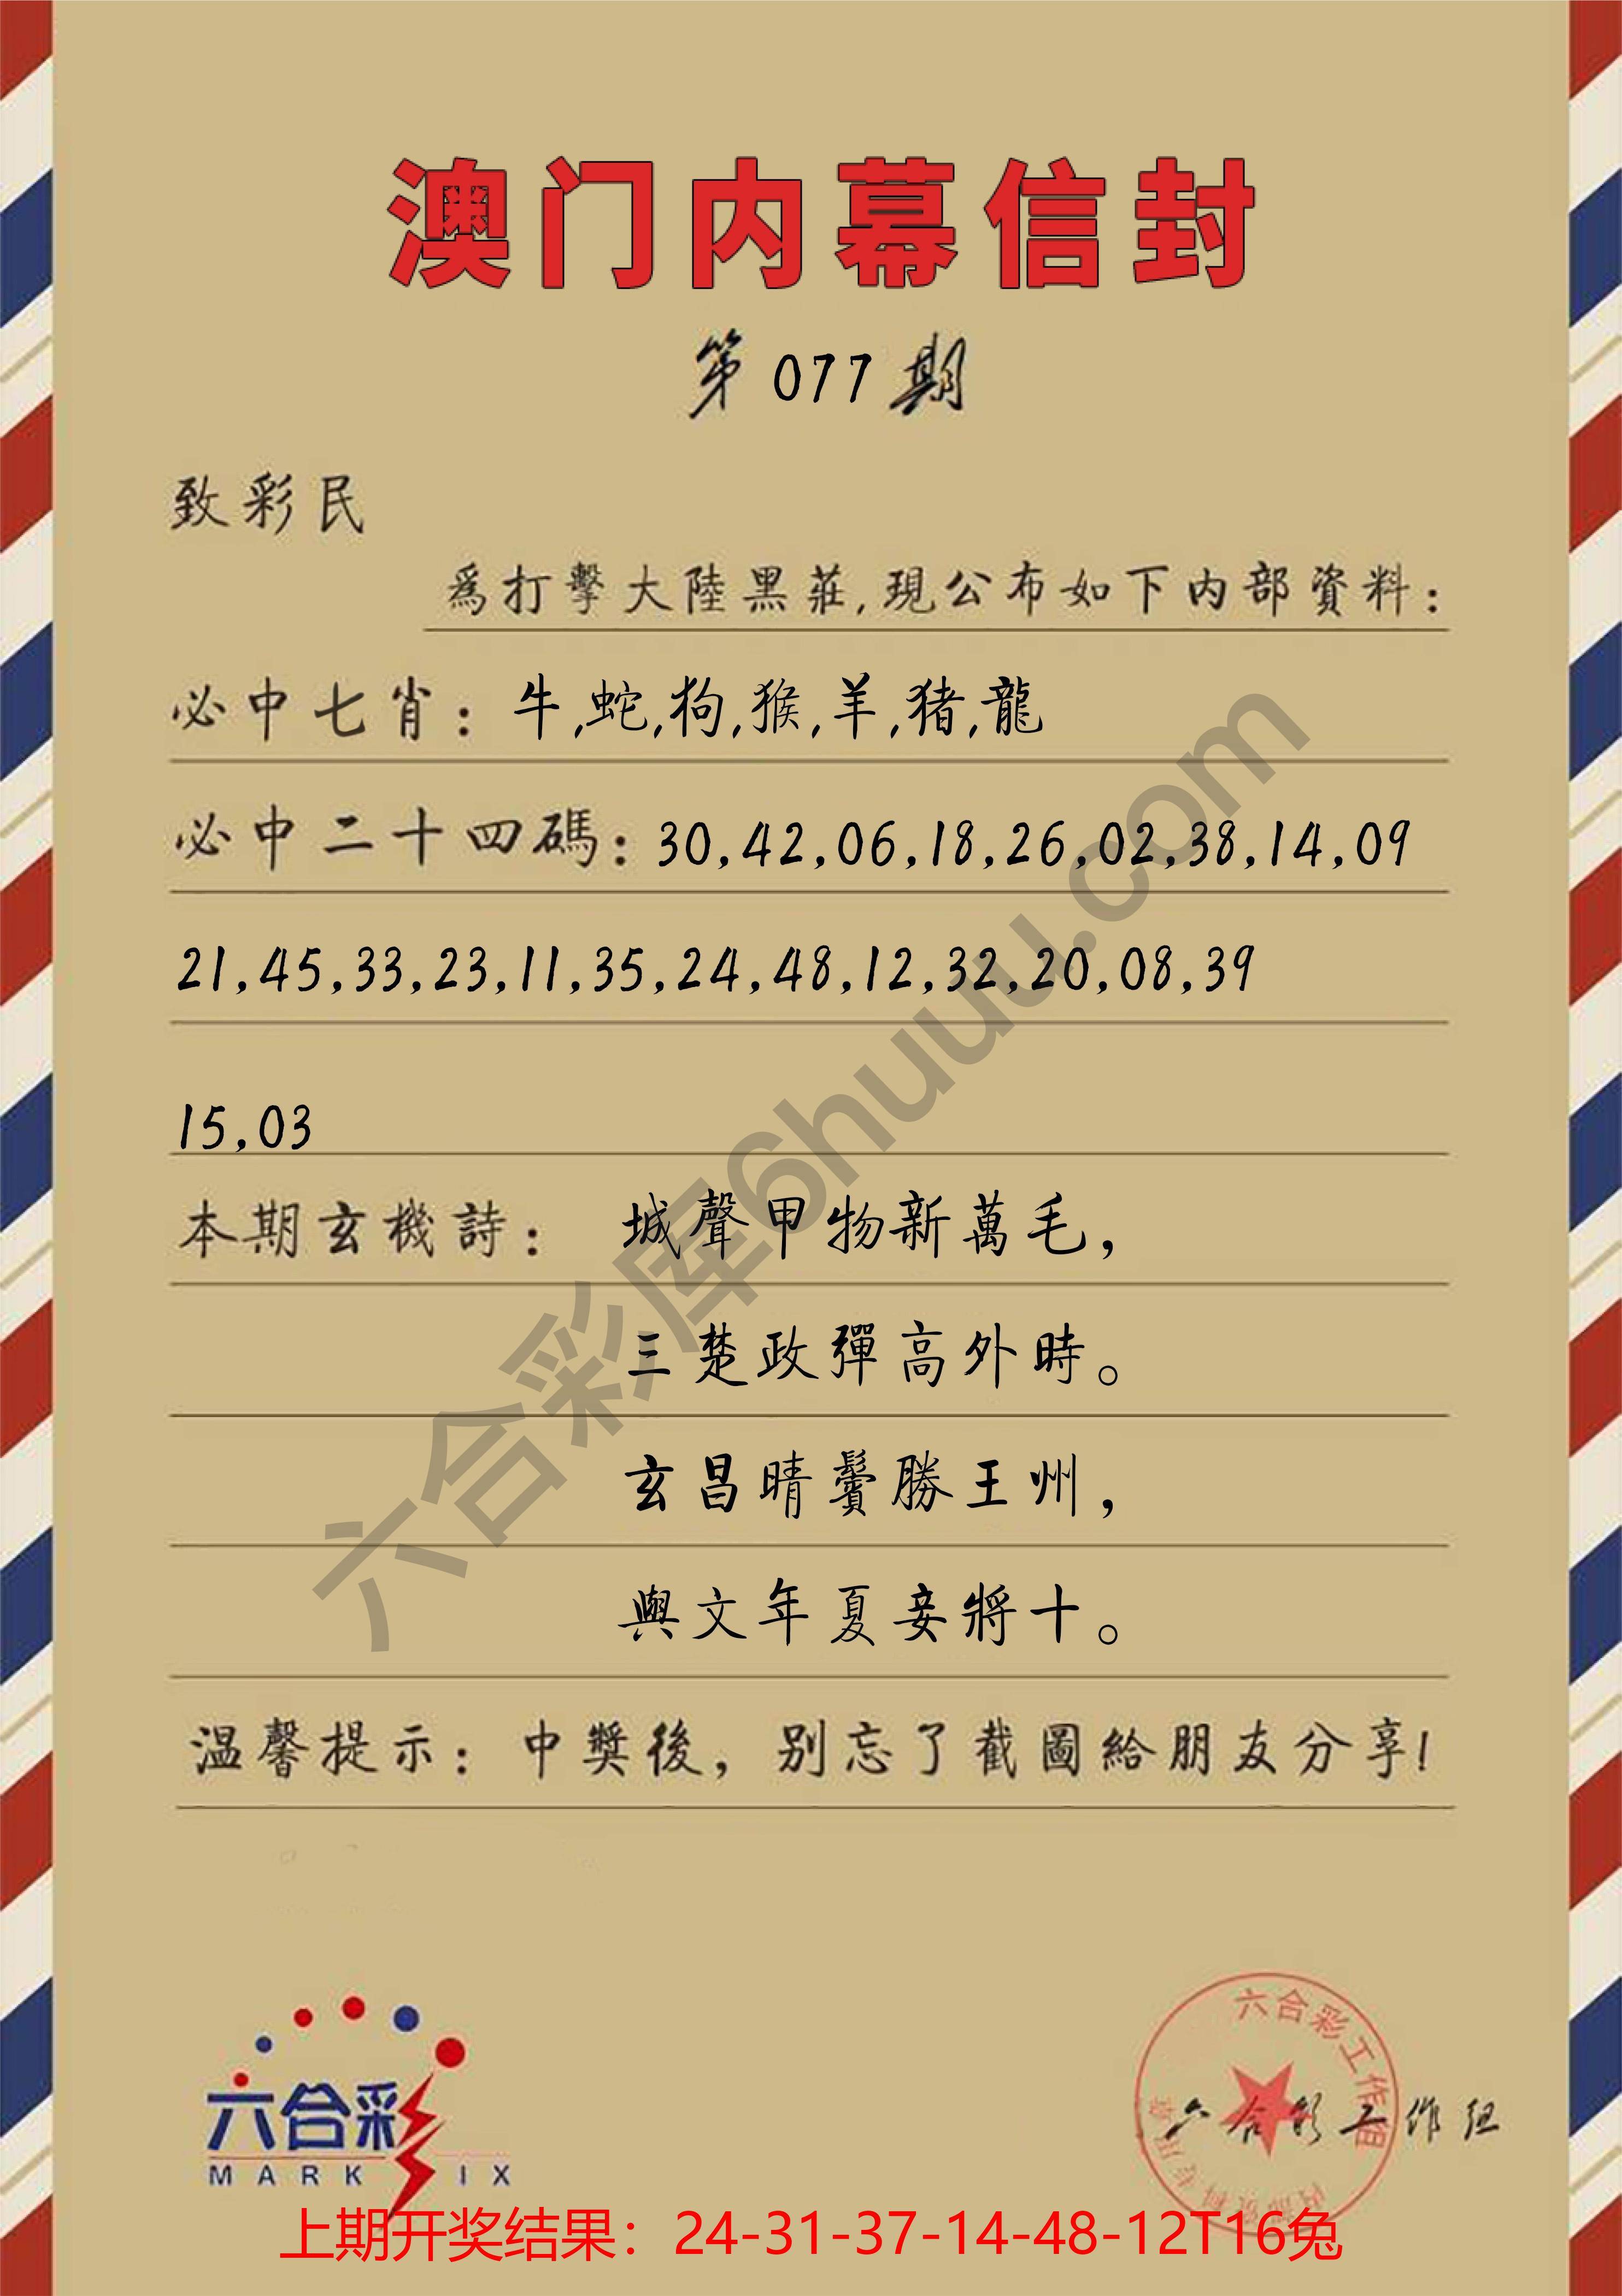 澳门内幕信封
第077期
致彩民
為打擊大陸黑莊,現公布如下内部資料:
必中七肖:牛,蛇,狗,猴,羊,猪,龍
必中二十四碼:30,42,06,18,26,02,38,14,09
21,45,33,23,11,35,24,48,12,32,20,08,39
15,03
本期玄機詩: 城聲甲物新萬毛,
三楚政彈高外時。
玄昌晴鬢勝王州,
與文年夏妾將十。
温馨提示:中獎後,别忘了截圖給朋友分享!
六合彩库6huuu.com
六合彩
MARK SIX
六合彩工作组
六合彩工作组
上期开奖结果:24-31-37-14-48-12T16兔